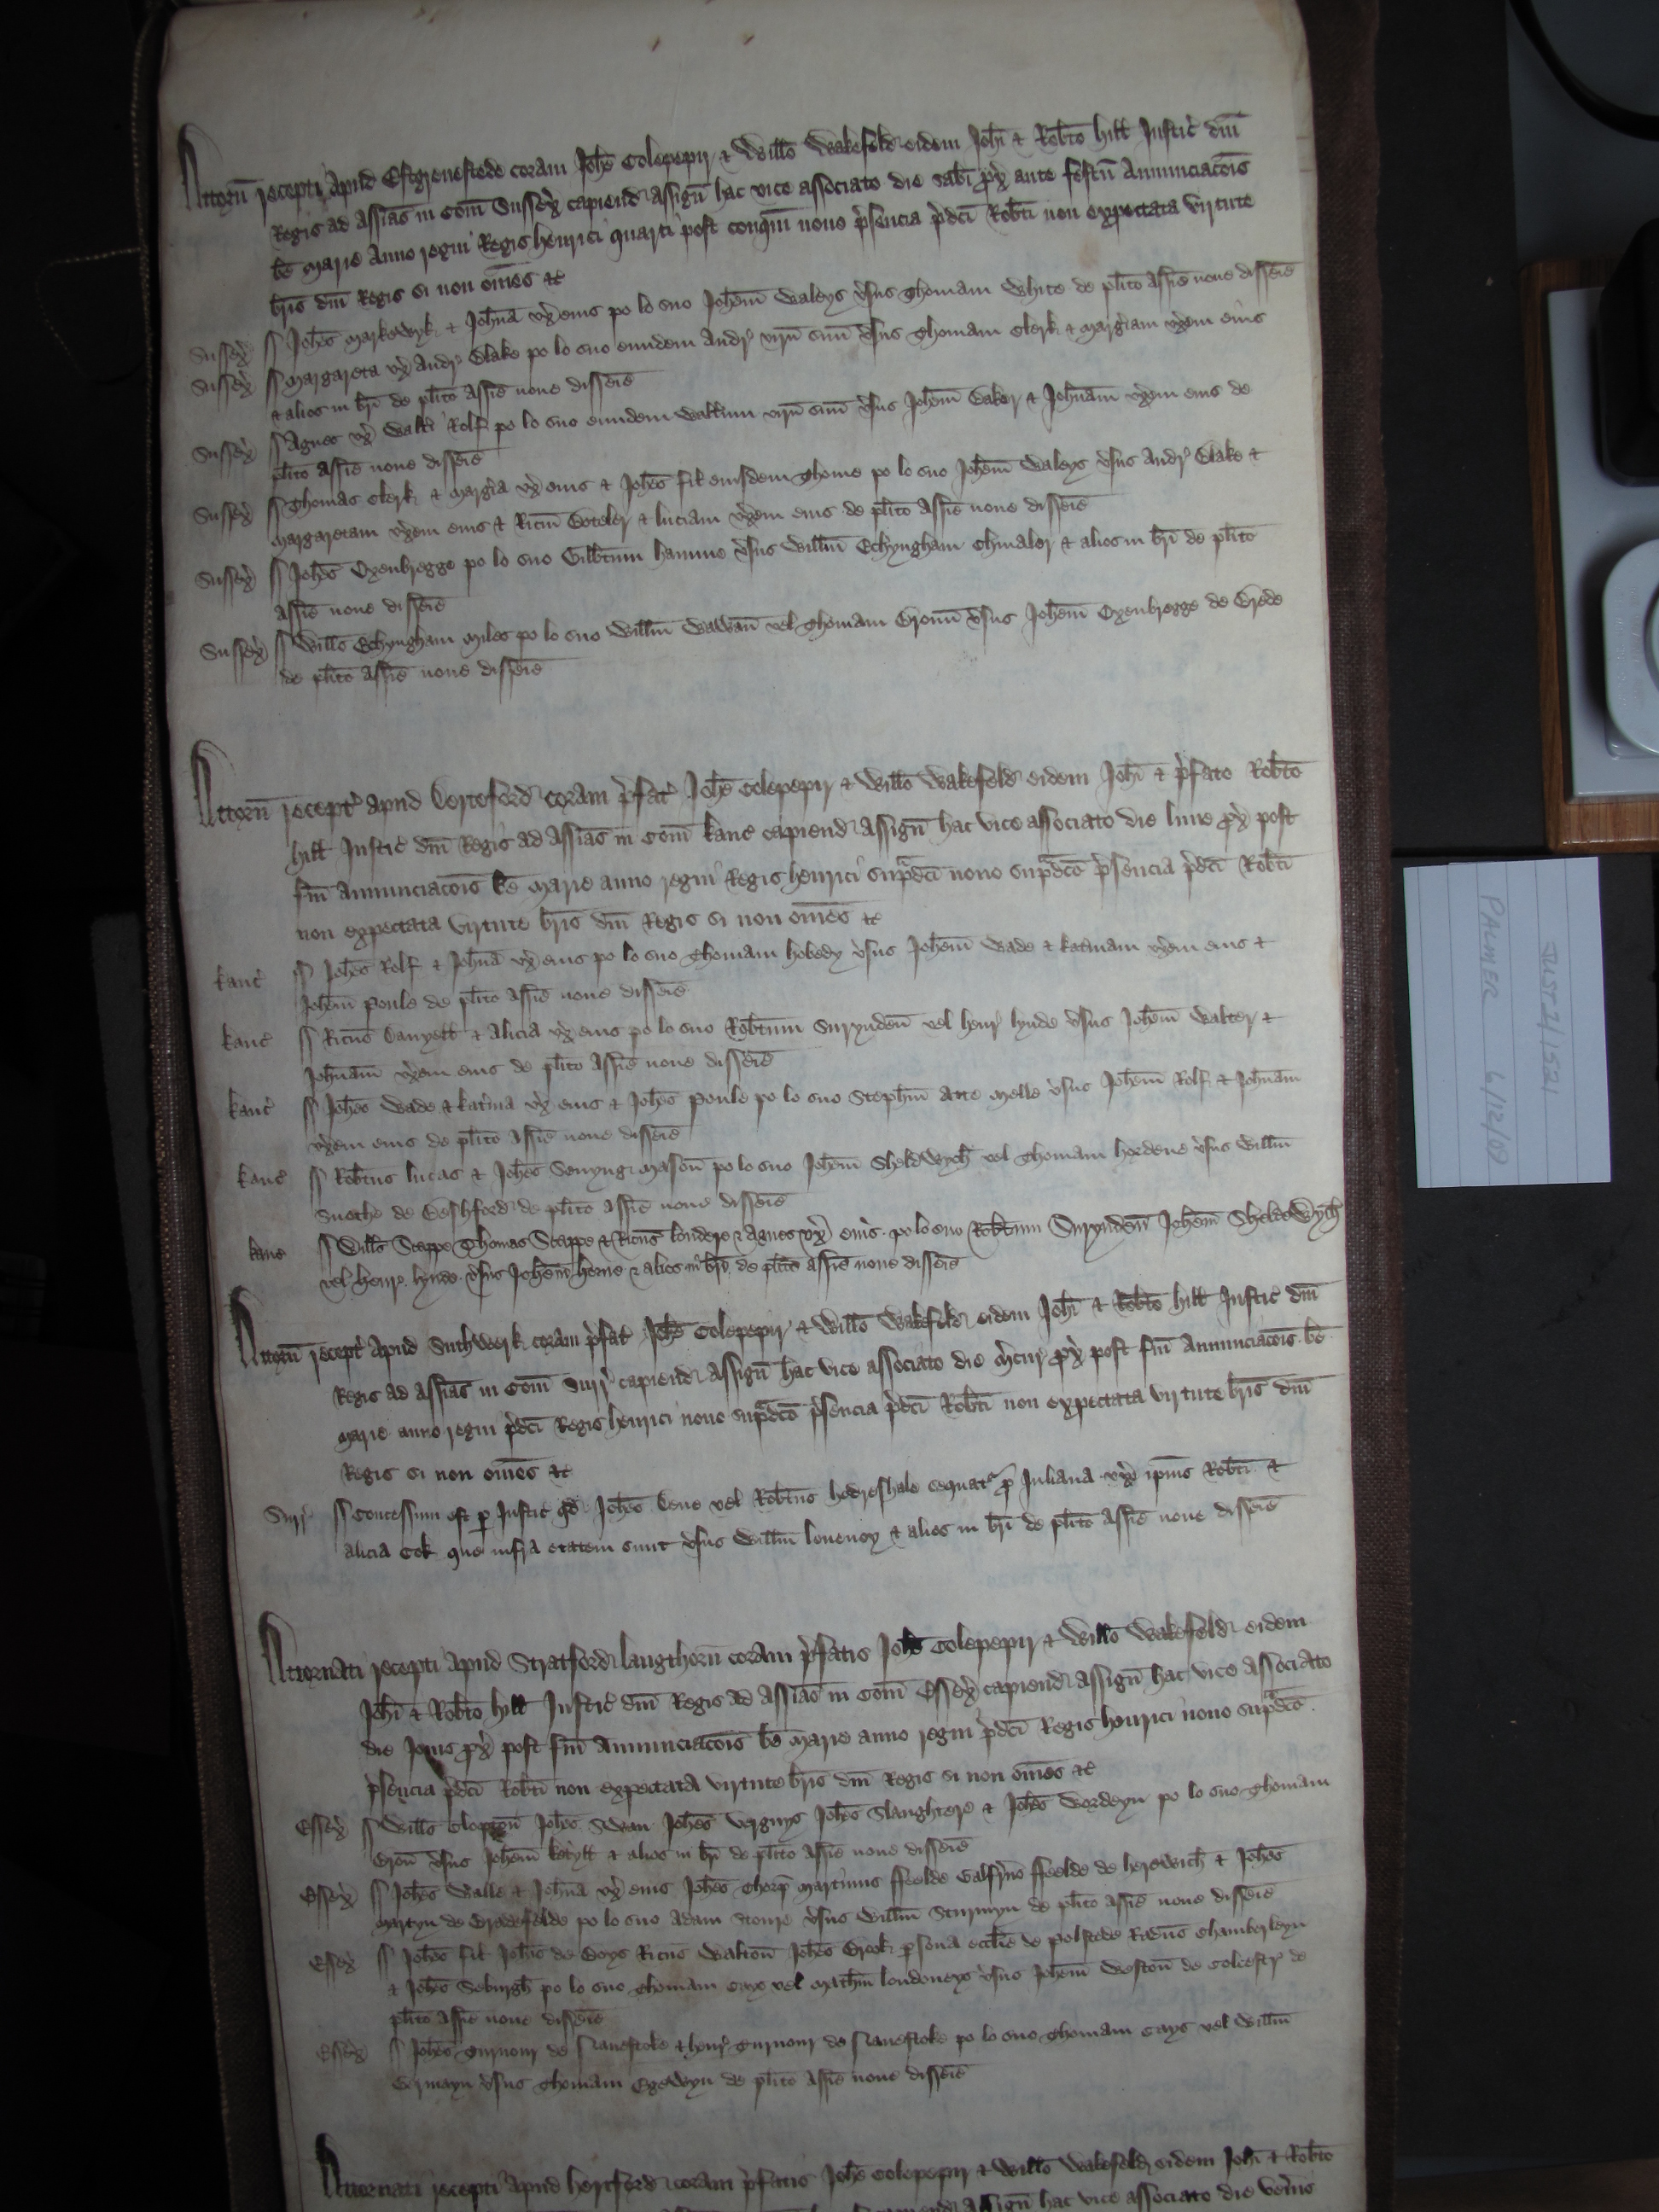 Attorn̄ recepti apud Estgrenestede coram Joħe Colepepir & Willo Wakefeld eidem Joħi & Roƀto Hill Justic̄ dn̄i
Regis ad assīas in Com̄ Sussex̄ capiend assign̄ hac vice associato die Sab̄i px̄ ante festū Annunciac̄ois
b̄e Marie Anno regni Regis Henrici quarti post conqm̄ nono p̄sencia p̄dc̄i Roƀti non expectata virtute
bris dn̄i Regis si non om̄es &c̄
Sussex̄ ſſ Joħes Markewyk & Joħna ux̄ eius po lo suo Joħem Waleys v̄sus Thomam White de plito assīe noue disseīe
Sussex̄ ſſ Margareta ux̄ Andr̄ Blake po lo suo eundem Andr̄ virū suū v̄sus Thomam Clerk & Margīam ux̄em eius
& alios in br̄i de plito assīe noue disseīe
Sussex̄ ſſ Agnes ux̄ Walt̄i Rolf po lo suo eundem Walt̄um virū suū v̄sus Joħem Baker & Joħnam ux̄em eius de
plito assīe noue disseīe
Sussex̄ ſſ Thomas Clerk & Margīa ux̄ eius & Joħes fil eiusdem Thome po lo suo Joħem Waleys v̄sus Andr̄ Blake &
Margaretam ux̄em eius & Ricm̄ Boteler & Luciam ux̄em eius de plito assīe noue disseīe
Sussex̄ ſſ Joħes Oxenbregge po lo suo Gilb̄tum Hamme v̄sus Willm̄ Echyngham Chiualer & alios in br̄i de plito
assīe noue disseīe
Sussex̄ ſſ Wills Echyngham Miles po lo suo Willm̄ Wawan̄ vel Thomam Broun̄ v̄sus Joħem Oxenbregge de Brede
de plito assīe noue disseīe
Attorn̄ recept̄ apud Derteford coram p̄fat̄ Joħe Colepepir & Willo Wakefeld eidem Joħi & p̄fato Roƀto
Hill Justic̄ dn̄i Regis ad assīas in Com̄ Kanc̄ capiend assign̄ hac vice associato die lune px̄ post
fm̄ Annunciac̄ois b̄e Marie anno regni Regis Henrici sup̄dc̄i nono sup̄dc̄o p̄sencia p̄dc̄i Roƀti
non expectata virtute bris dn̄i Regis si non om̄es &c̄
Kanc̄ ſſ Joħes Rolf & Joħna ux̄ eius po lo suo Thomam Hobedy v̄sus Joħem Wade & Kat̄inam ux̄em eius &
Joħem Poule de plito assīe noue disseīe
Kanc̄ ſſ Ricus Danyell & Alicia ux̄ eius po lo suo Roƀtum Surynden̄ vel Henr̄ Lynde v̄sus Joħem Walter &
Joħnam ux̄em eius de plito assīe noue disseīe
Kanc̄ ſſ Joħes Wade & Kat̄ina ux̄ eius & Joħes Poule po lo suo Stepħm Atte Melle v̄sus Joħem Rolf & Joħnam
ux̄em eius de plito assīe noue disseīe
Kanc̄ ſſ Roƀtus Lucas & Joħes Sonyng Mason̄ po lo suo Joħem Sheldwych vel Thomam Hordene v̄sus Willm̄
Snothe de Besshford de plito assīe noue disseīe
Kanc̄ ſſ Wills Stappe Thomas Stappe & Ricus Londere & Agnes ux̄ eius po lo suo Roƀtum Surynden̄ Joħem Sheldewych
vel Henr̄ Lynde v̄sus Joħem Herne & alios in br̄i de plito assīe noue disseīe
Attorn̄ recept̄ apud Suthwerk coram p̄fat̄ Joħe Colepepir & Willo Wakefeld eidem Joħi & Roƀto Hill Justic̄ dn̄i
Regis ad assīas in Com̄ Surr̄ capiend assign̄ hac vice associato die M̄cur̄ px̄ post fm̄ Annunciac̄ois b̄e
Marie anno regni p̄dc̄i Regis Henrici nono sup̄dc̄o p̄sencia p̄dc̄i Roƀti non expectata virtute bris dn̄i
Regis si non om̄es &c̄
Surr̄ ſſ Concessum est p Justic̄ qd Joħes Dene vel Roƀtus Hedreshale sequat̄ p̄ Juliana ux̄e ip̄ius Roƀti &
Alicia Cok que infra etatem sunt v̄sus Willm̄ Loueney & alios in br̄i de plito assīe noue disseīe
Attornati recepti apud Stratford Langthorn̄ coram p̄fatis Joħe Colepepir & Willo Wakefeld eidem
Joħi & Roƀto Hyll Justic̄ dn̄i Regis ad assīas in Com̄ Essex̄ capiend assign̄ hac vice associato
die Jouis px̄ post fm̄ Annunciac̄ois b̄e Marie anno regni p̄dc̄i Regis Henrici nono sup̄dc̄o
p̄sencia p̄dc̄i Roƀti non expectata virtute bris dn̄i Regis si non om̄es &c̄
Essex̄ ſſ Wills Clopton̄ Joħes Swan Joħes Vergnys Joħes Slaughtere & Joħes Wordeyn po lo suo Thomam
Broū v̄sus Joħem Ketyll & alios in br̄i de plito assīe noue disseīe
Essex̄ ſſ Joħes Walle & Joħna ux̄ eius Joħes Thorp̄ Martinus ffeelde Galfr̄us ffeelde de Herewich & Joħes
Martyn de Bradefelde po lo suo Adam Stoure v̄sus Willm̄ Sturmyn de plito assīe noue disseīe
Essex̄ ſſ Joħes fil Joħis de Boys Ricus Walton̄ Joħes Brook psona ecclīe de Polstede Radus Chamberleyn
& Joħes Seburgh po lo suo Thomam Cays vel Matħm Londoneys v̄sus Joħem Weston̄ de Colcestr̄ de
plito assīe noue disseīe
Essex̄ ſſ Joħes Gurnour de Nauestoke & Henr̄ Gurnour de Nauestoke po lo suo Thomam Cays vel Willm̄
Germayn v̄sus Thomam Egewyn de plito assīe noue disseīe
Attornati recepti apud Hertford coram p̄fatis Joħe Colepepir & Willo Wakefeld eidem Joħi & Roƀto
assign̄ hac vice associato die ven̄is
PALMER
JUST 2/1521
6/12/09